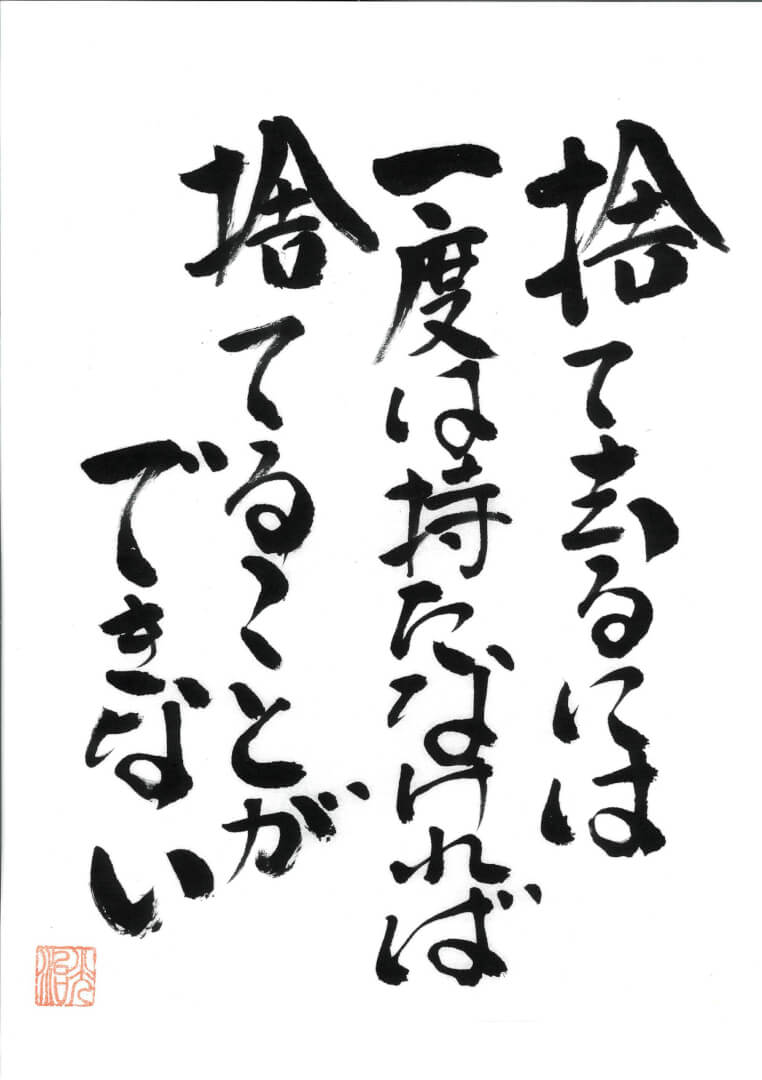 捨て去るには
一度は持たなければ
捨てることが
できない